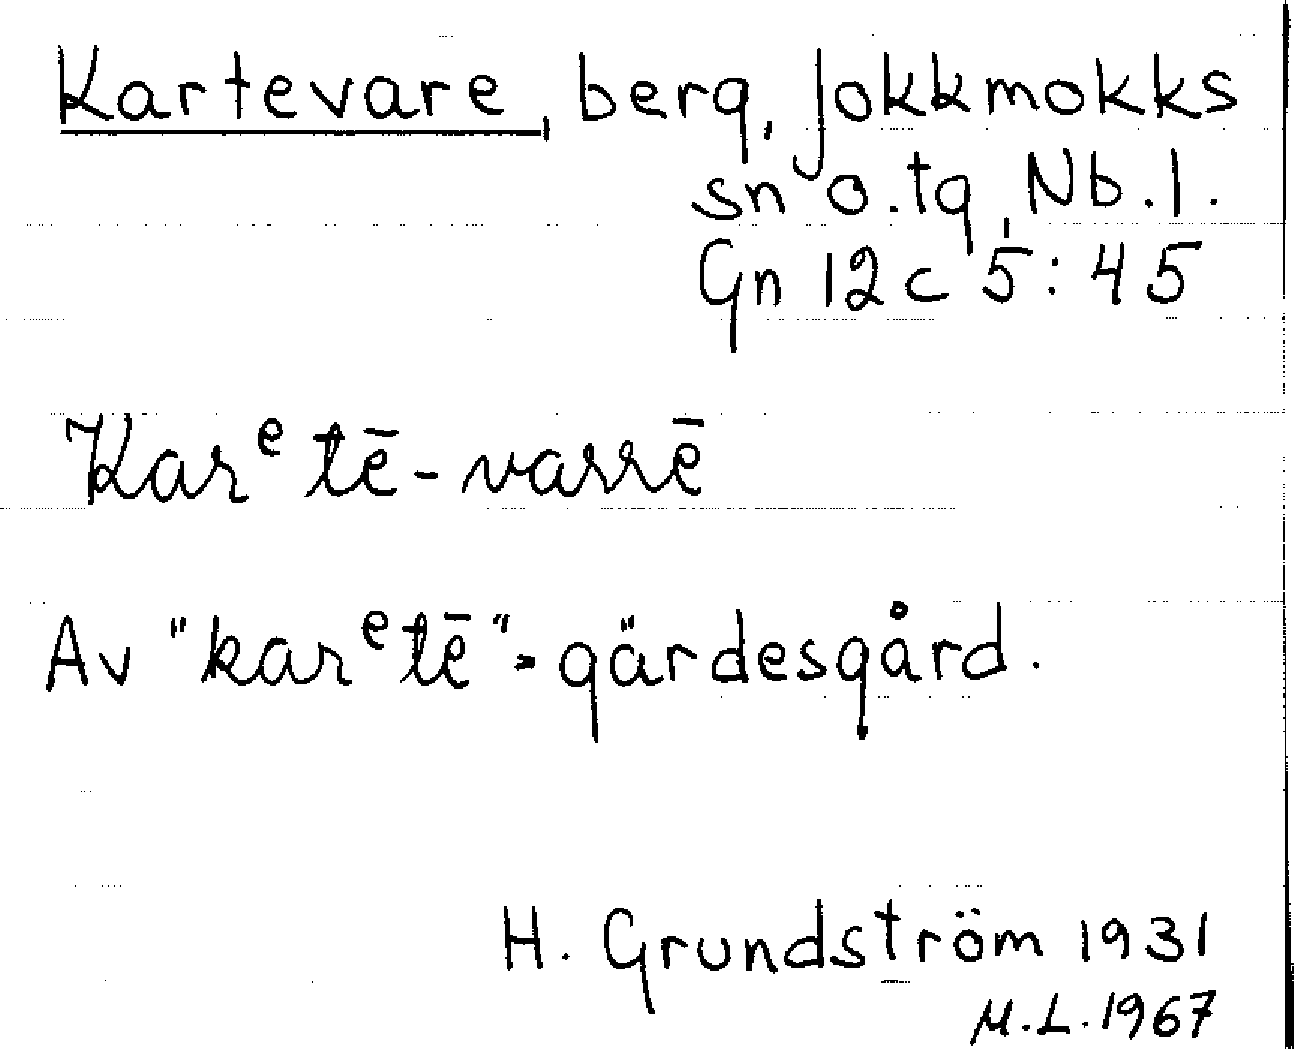 Kartevare, berg, Jokkmokks
sn o. tg, Nb. l.
Gn 12 c 5:45
Karᵉtē-varrē
Av "karᵉtē" = gärdesgård.
H. Grundström 1931
M.L. 1967